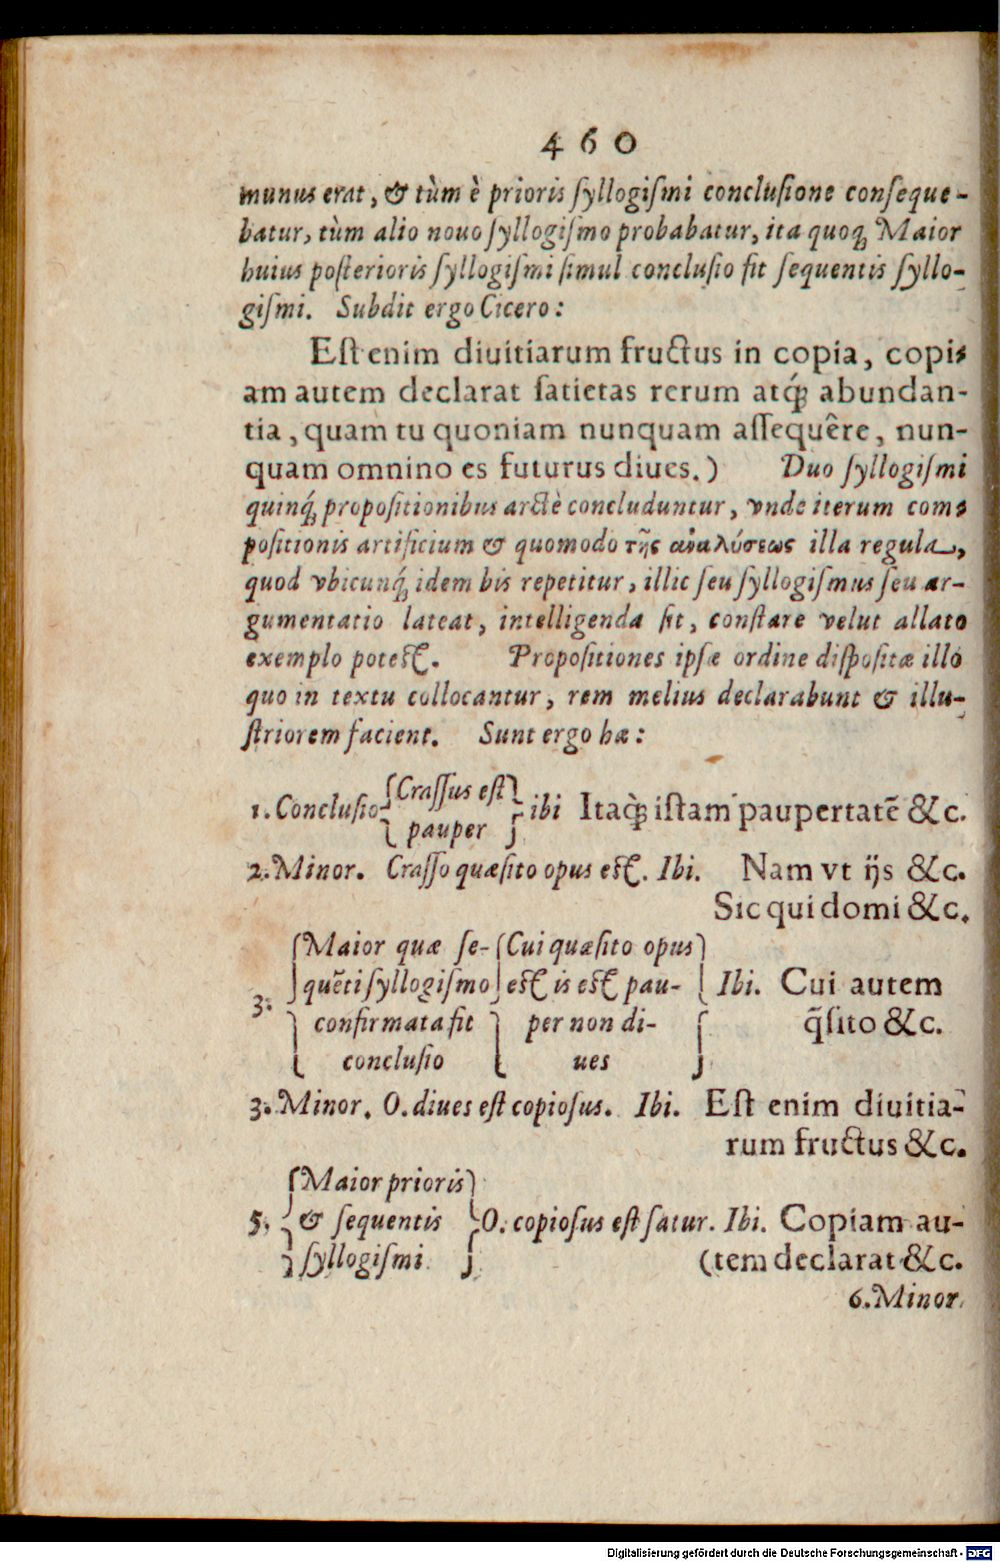 460
munus erat, & tùm è prioris ſyllogiſmi concluſione conſeque-
batur, tùm alio nouo ſyllogiſmo probabatur, ita quoq; Maior
huius poſterioris ſyllogiſmi ſimul concluſio fit ſequentis ſyllo-
giſmi. Subdit ergo Cicero:
Eſt enim diuitiarum fructus in copia, copi-
am autem declarat ſatietas rerum atq́; abundan-
tia, quam tu quoniam nunquam aſſequêre, nun-
quam omnino es futurus diues.) Duo ſyllogiſmi
quinq́; propoſitionibus arctè concluduntur, vnde iterum com-
poſitionis artificium & quomodo τῆς ἀναλύσεως illa regula,
quod vbicunq́; idem bis repetitur, illic ſeu ſyllogiſmus ſeu ar-
gumentatio lateat, intelligenda ſit, conſtare velut allato
exemplo poteſt. Propoſitiones ipſæ ordine diſpoſitæ illo
quo in textu collocantur, rem melius declarabunt & illu-
ſtriorem facient. Sunt ergo hæ:
1. Concluſio { Craſſus eſt } ibi Itaq; iſtam paupertatē &c.
pauper
2. Minor. Craſſo quæſito opus eſt. Ibi. Nam vt ijs &c.
Sic qui domi &c.
{ Maior quæ ſe- { Cui quæſito opus }
3. quēti ſyllogiſmo eſt is eſt pau- Ibi. Cui autem
confirmata fit per non di- q̃ſito &c.
concluſio ues
3. Minor. O. diues eſt copioſus. Ibi. Eſt enim diuitia-
rum fructus &c.
{ Maior prioris }
5. & ſequentis O. copioſus eſt ſatur. Ibi. Copiam au-
ſyllogiſmi (tem declarat &c.
6. Minor.
Digitalisierung gefördert durch die Deutsche Forschungsgemeinschaft - DFG